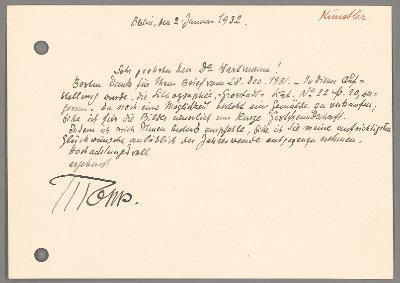 Künstler
Berlin, den 2. Januar 1932.
Sehr geehrter Herr Dr. Hartmann!
Besten Dank für Ihren Brief vom 28. Dez. 1931. – In dieser Aus=
stellung wurde die Lithographie, "Grosstadt" Kat. No 22
Da noch eine Möglichkeit besteht ein Gemälde zu verkaufen,
bitte ich für die Bilder neuerlich um kurze
Indem ich mich Ihnen bestens empfehle, bitte ich Sie meine aufrichtigsten
Glückwünsche anläßlich der Jahreswende entgegen nehmen.
Hochachtungsvoll
ergebenst